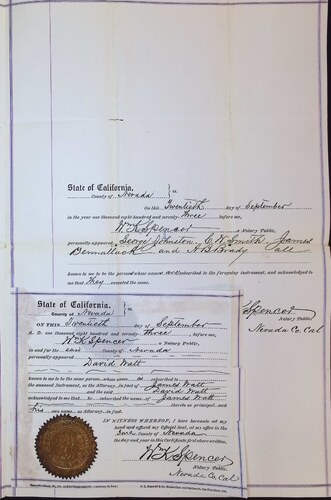 State of California,
County of Nevada } ss
On this Twentieth day of September
in the year one thousand eight hundred and seventy-Three before me,
W.K. Spencer a Notary Public,
personally appeared George Johnston, E.W. Smith James
Dermallack and A.B. Brady
known to me to be the persons whose names subscribed to the foregoing instrument, and acknowledged to
me that They executed the same.
Spencer
Notary Public
Nevada Co. Cal
State of California,
County of Nevada } ss
ON THIS Twentieth day of September
A. D. one thousand eight hundred and seventy Three before me,
W.K. Spencer a Notary Public,
in and for the said County of Nevada
personally appeared
David Watt
known to me to be the same person whose name is subscribed to
the annexed instrument, as the Attorney in fact of James Watt
and acknowledged to
me that he subscribed the name of James Watt
thereto as principal, and
his own name as Attorney in fact.
IN WITNESS WHEREOF, I have hereunto set my
hand and affixed my Official Seal, at my office in the
said County of Nevada
the day and year in this Certificate first above written.
W.K. Spencer
Notary Public
Nevada Co Cal